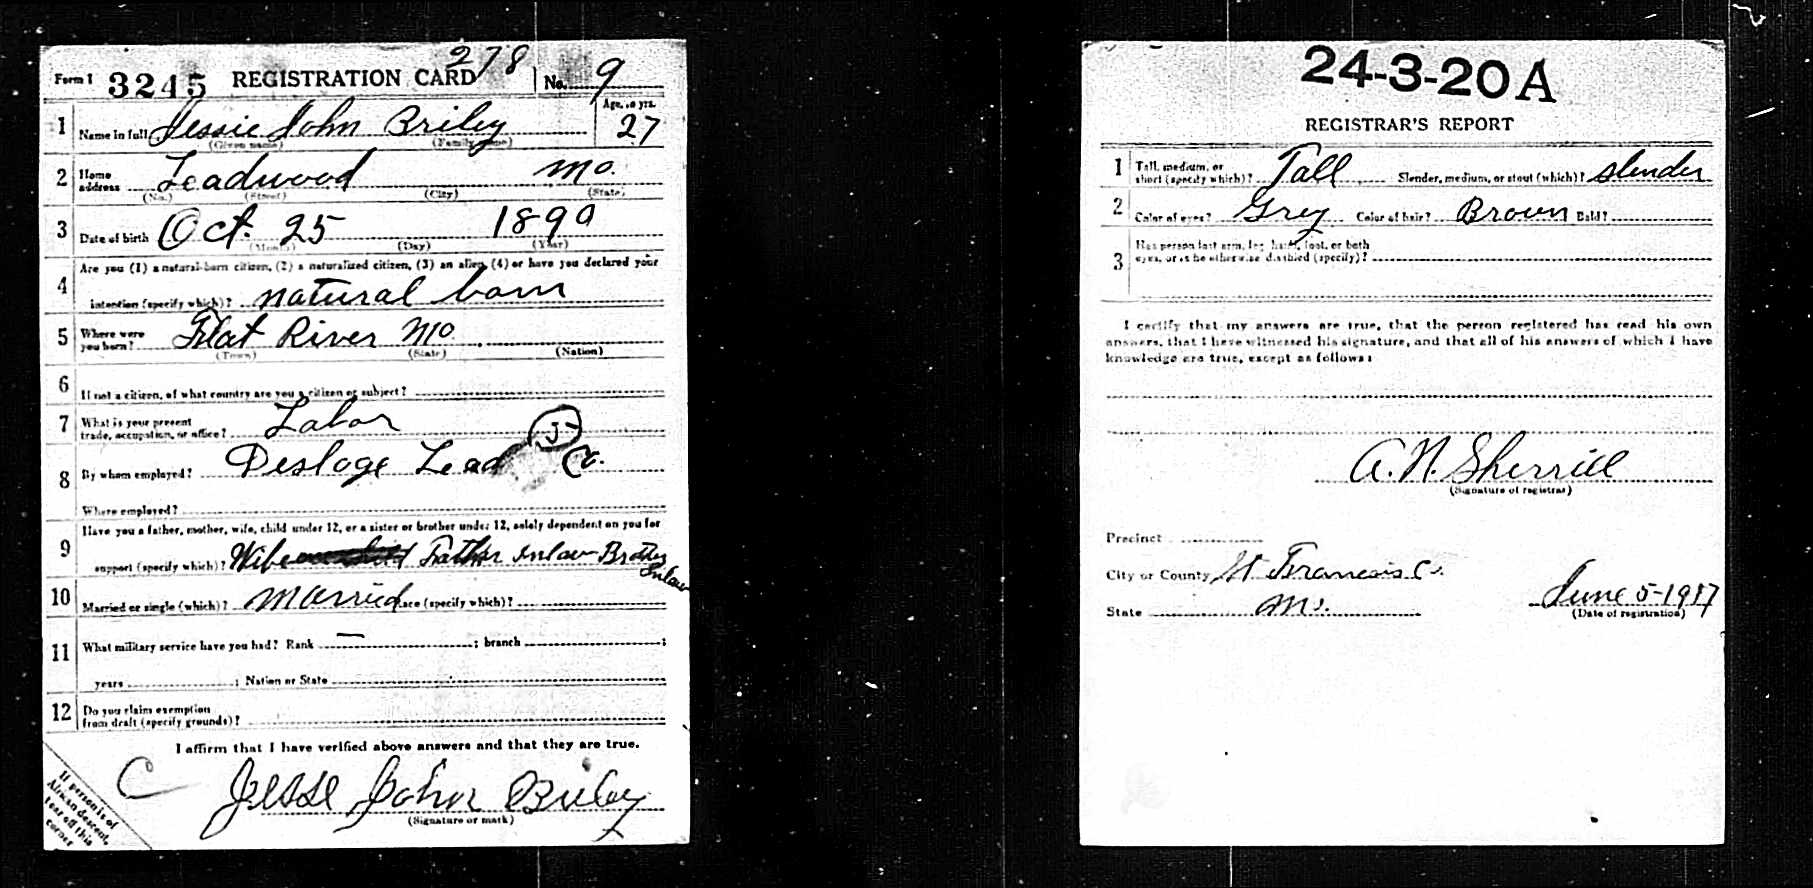 278
Form 1 3245 REGISTRATION CARD No. 9
1 Name in full Jessie John Briley Age, in yrs. 27
(Given name) (Family name)
2 Home address Leadwood Mo.
(No.) (Street) (City) (State)
3 Date of birth Oct. 25 1890
(Month) (Day) (Year)
Are you (1) a natural-born citizen, (2) a naturalized citizen, (3) an alien, (4) or have you declared your
4 intention (specify which)? natural born
5 Where were you born? Flat River Mo.
(Town) (State) (Nation)
6 If not a citizen, of what country are you a citizen or subject?
7 What is your present trade, occupation, or office? Labor
J
8 By whom employed? Desloge Lead Co.
Where employed?
Have you a father, mother, wife, child under 12, or a sister or brother under 12, solely dependent on you for
9 support (specify which)? Wife Father inlaw Brother
inlaw
10 Married or single (which)? Married Race (specify which)?
11 What military service have you had? Rank — ; branch ;
years ; Nation or State
12 Do you claim exemption from draft (specify grounds)?
I affirm that I have verified above answers and that they are true.
C
Jesse John Briley
(Signature or mark)
If person is of
African descent,
tear off this
corner
24-3-20 A
REGISTRAR'S REPORT
1 Tall, medium, or short (specify which)? Tall Slender, medium, or stout (which)? slender
2 Color of eyes? Grey Color of hair? Brown Bald?
3 Has person lost arm, leg, hand, foot, or both
eyes, or is he otherwise disabled (specify)?
I certify that my answers are true, that the person registered has read his own
answers, that I have witnessed his signature, and that all of his answers of which I have
knowledge are true, except as follows:
A. N. Sherrill
(Signature of registrar)
Precinct
City or County St Francois Co.
State Mo. June 5-1917
(Date of registration)